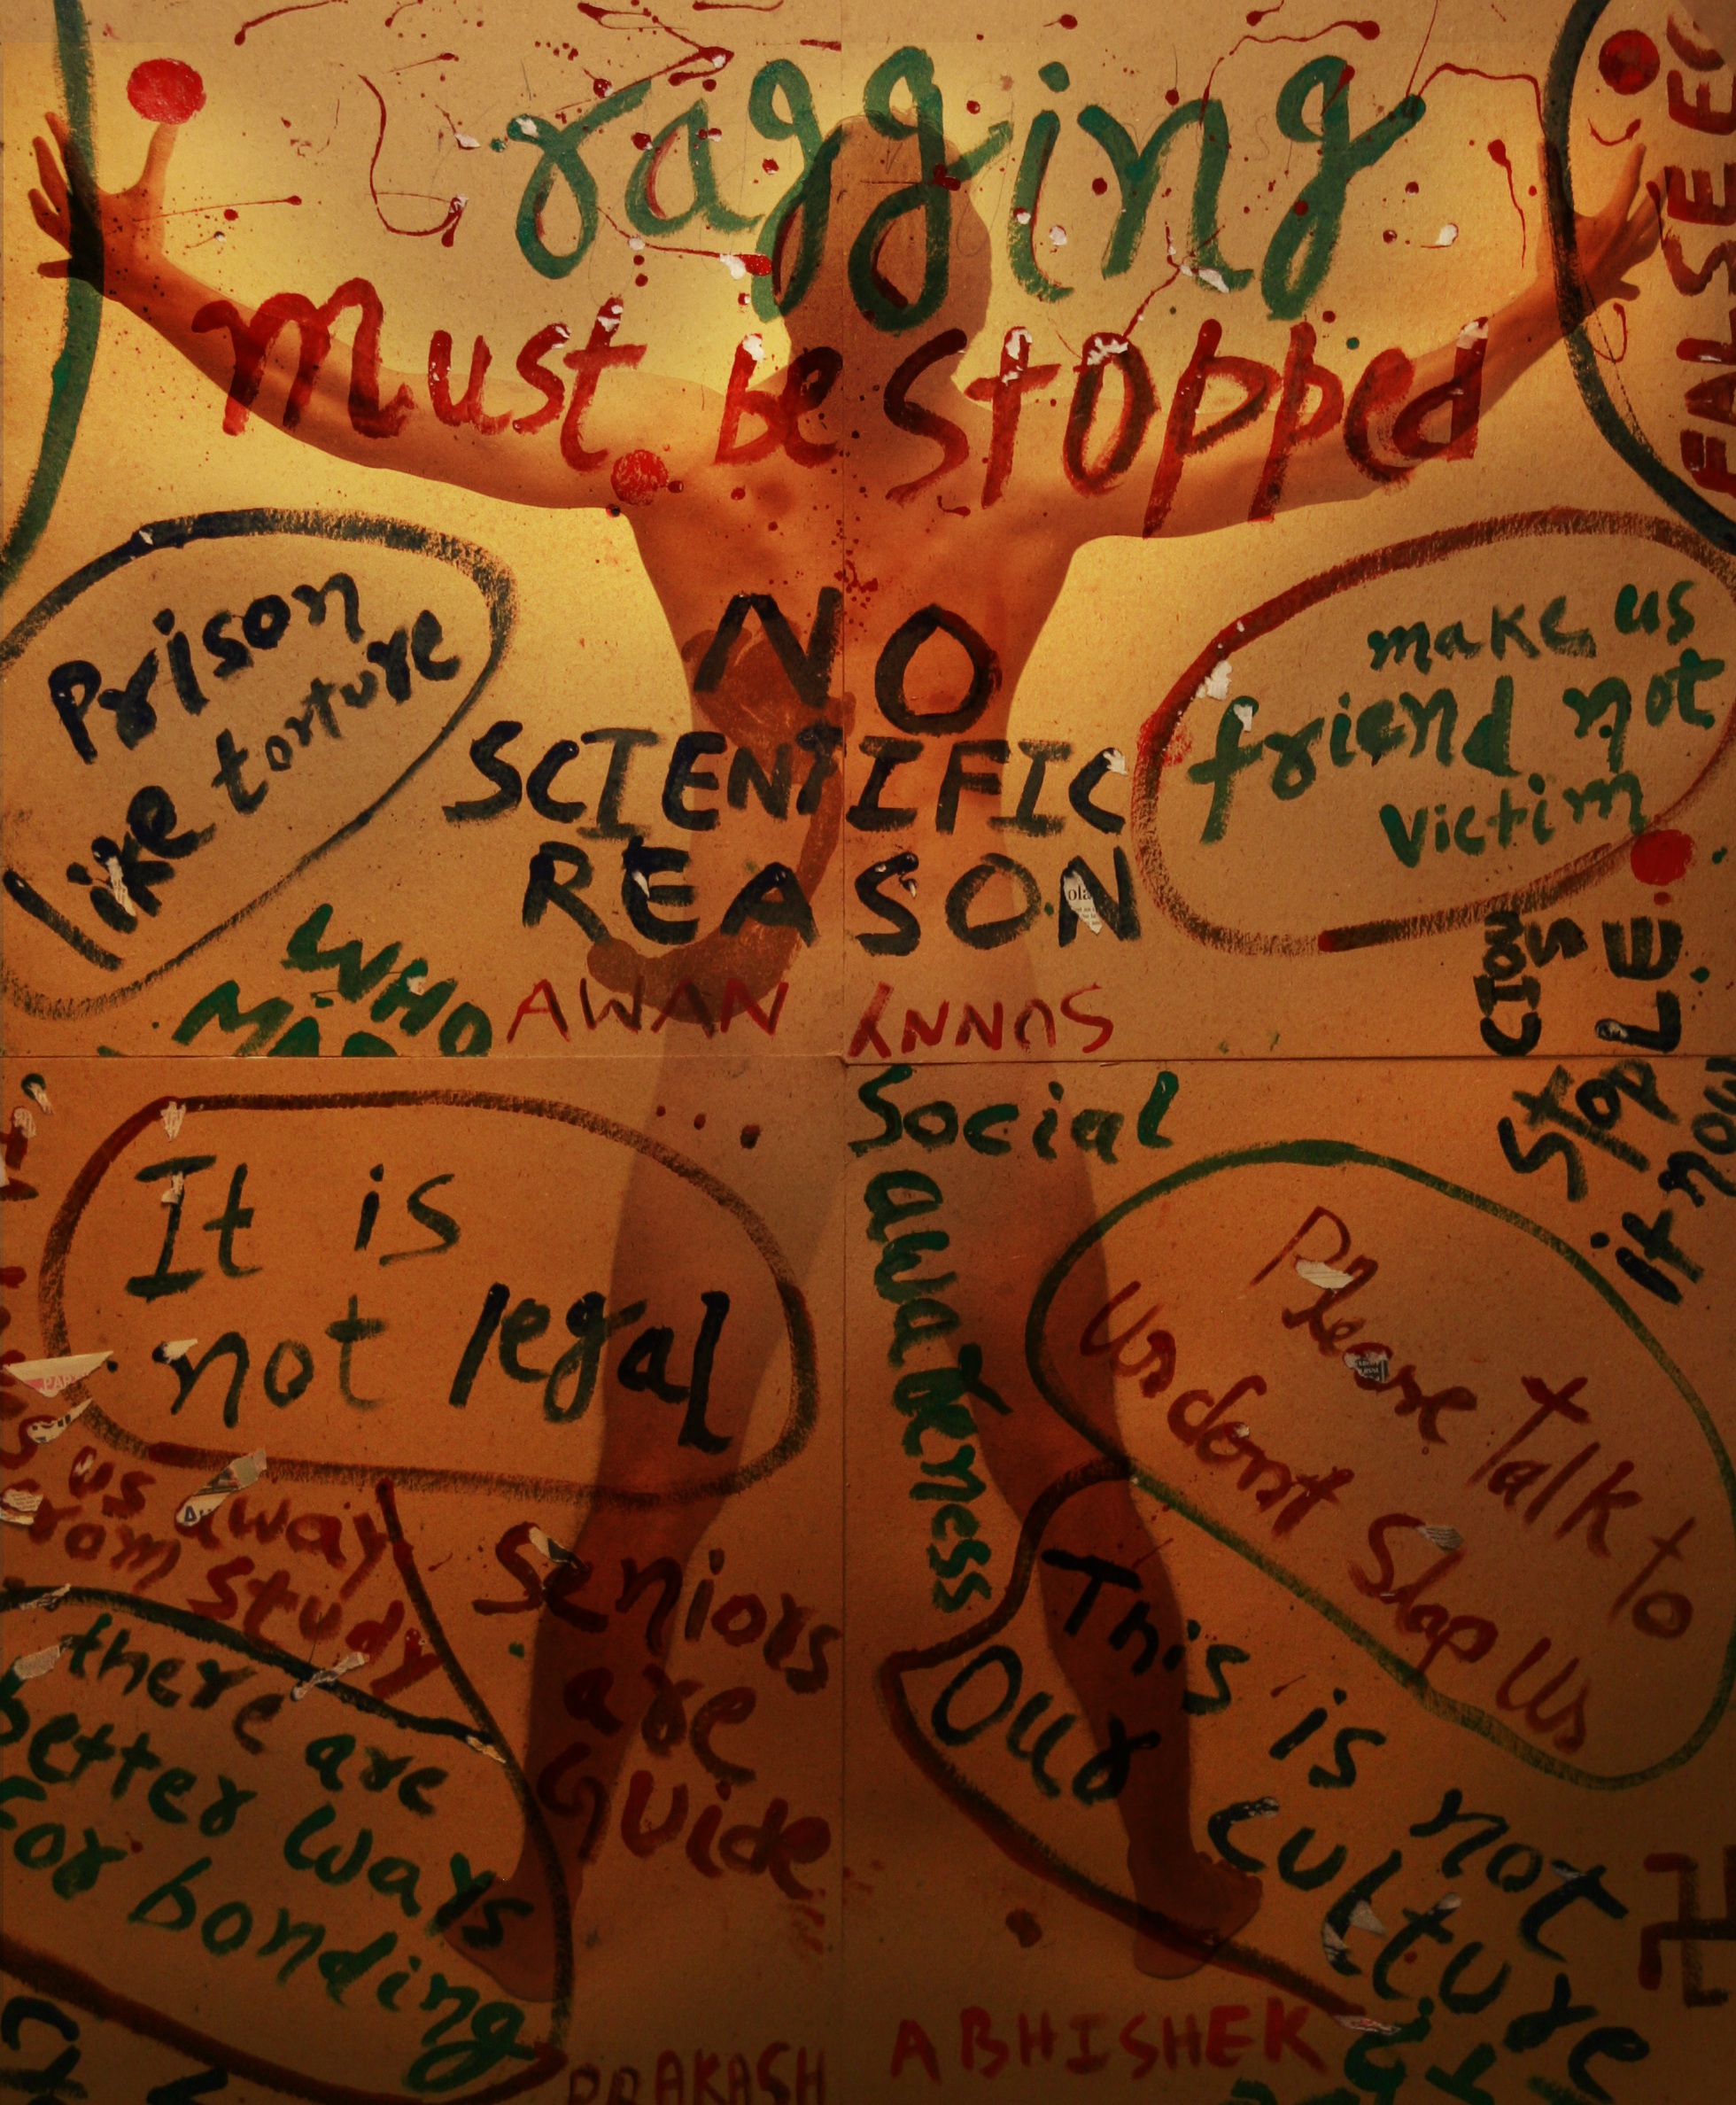 ragging
Must be stopped
FALSE EG
Prison
like torture
NO
SCIENTIFIC
REASON
make us
friend not
victim
WHO
AWAN
SUNNY
Social
awareness
Stop
it now
It is
not legal
Please Talk to
Us dont Slap Us
us away
from study
Seniors
are
Guide
there are
better ways
For bonding
This is not
Our culture
PRAKASH
ABHISHEK